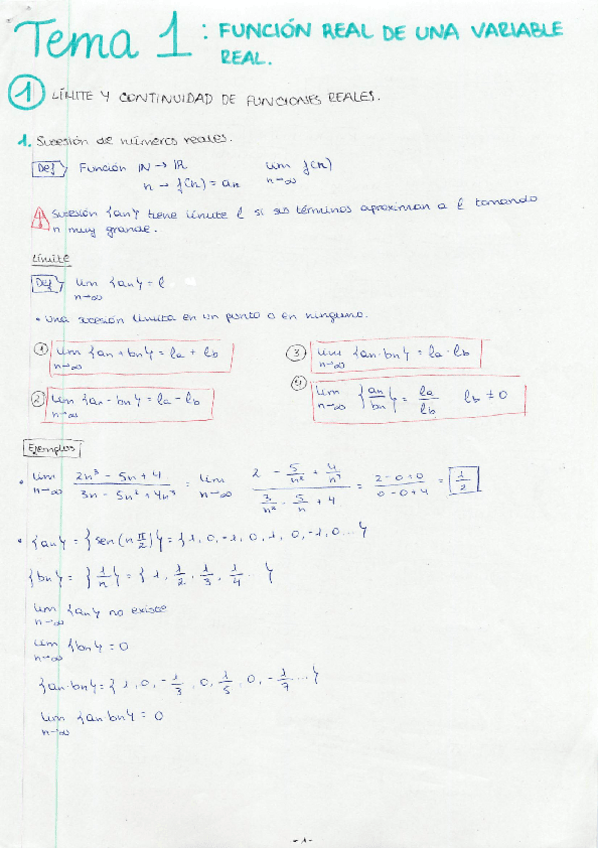 Tema 1: FUNCIÓN REAL DE UNA VARIABLE
REAL.
1 LÍMITE Y CONTINUIDAD DE FUNCIONES REALES.
1. Sucesión de números reales.
Def Función ℕ → ℝ lim f(n)
n → f(n) = an n→∞
Sucesión {an} tiene límite l si sus términos aproximan a l tomando
n muy grande.
Límite
Def lim {an} = l
n→∞
• Una sucesión límita en un punto o en ninguno.
① lim {an + bn} = la + lb
n→∞
③ lim {an · bn} = la · lb
n→∞
② lim {an - bn} = la - lb
n→∞
④ lim {an/bn} = la/lb lb ≠ 0
n→∞
Ejemplos
• lim (2n³ - 5n + 4)/(3n - 5n² + 4n³) = lim (2 - 5/n² + 4/n³)/(3/n² - 5/n + 4) = (2-0+0)/(0-0+4) = 1/2
n→∞ n→∞
• {an} = {sen(n π/2)} = {1, 0, -1, 0, 1, 0, -1, 0...}
{bn} = {1/n} = {1, 1/2, 1/3, 1/4...}
lim {an} no existe
n→∞
lim {bn} = 0
n→∞
{an·bn} = {1, 0, -1/3, 0, 1/5, 0, -1/7...}
lim {an bn} = 0
n→∞
-1-